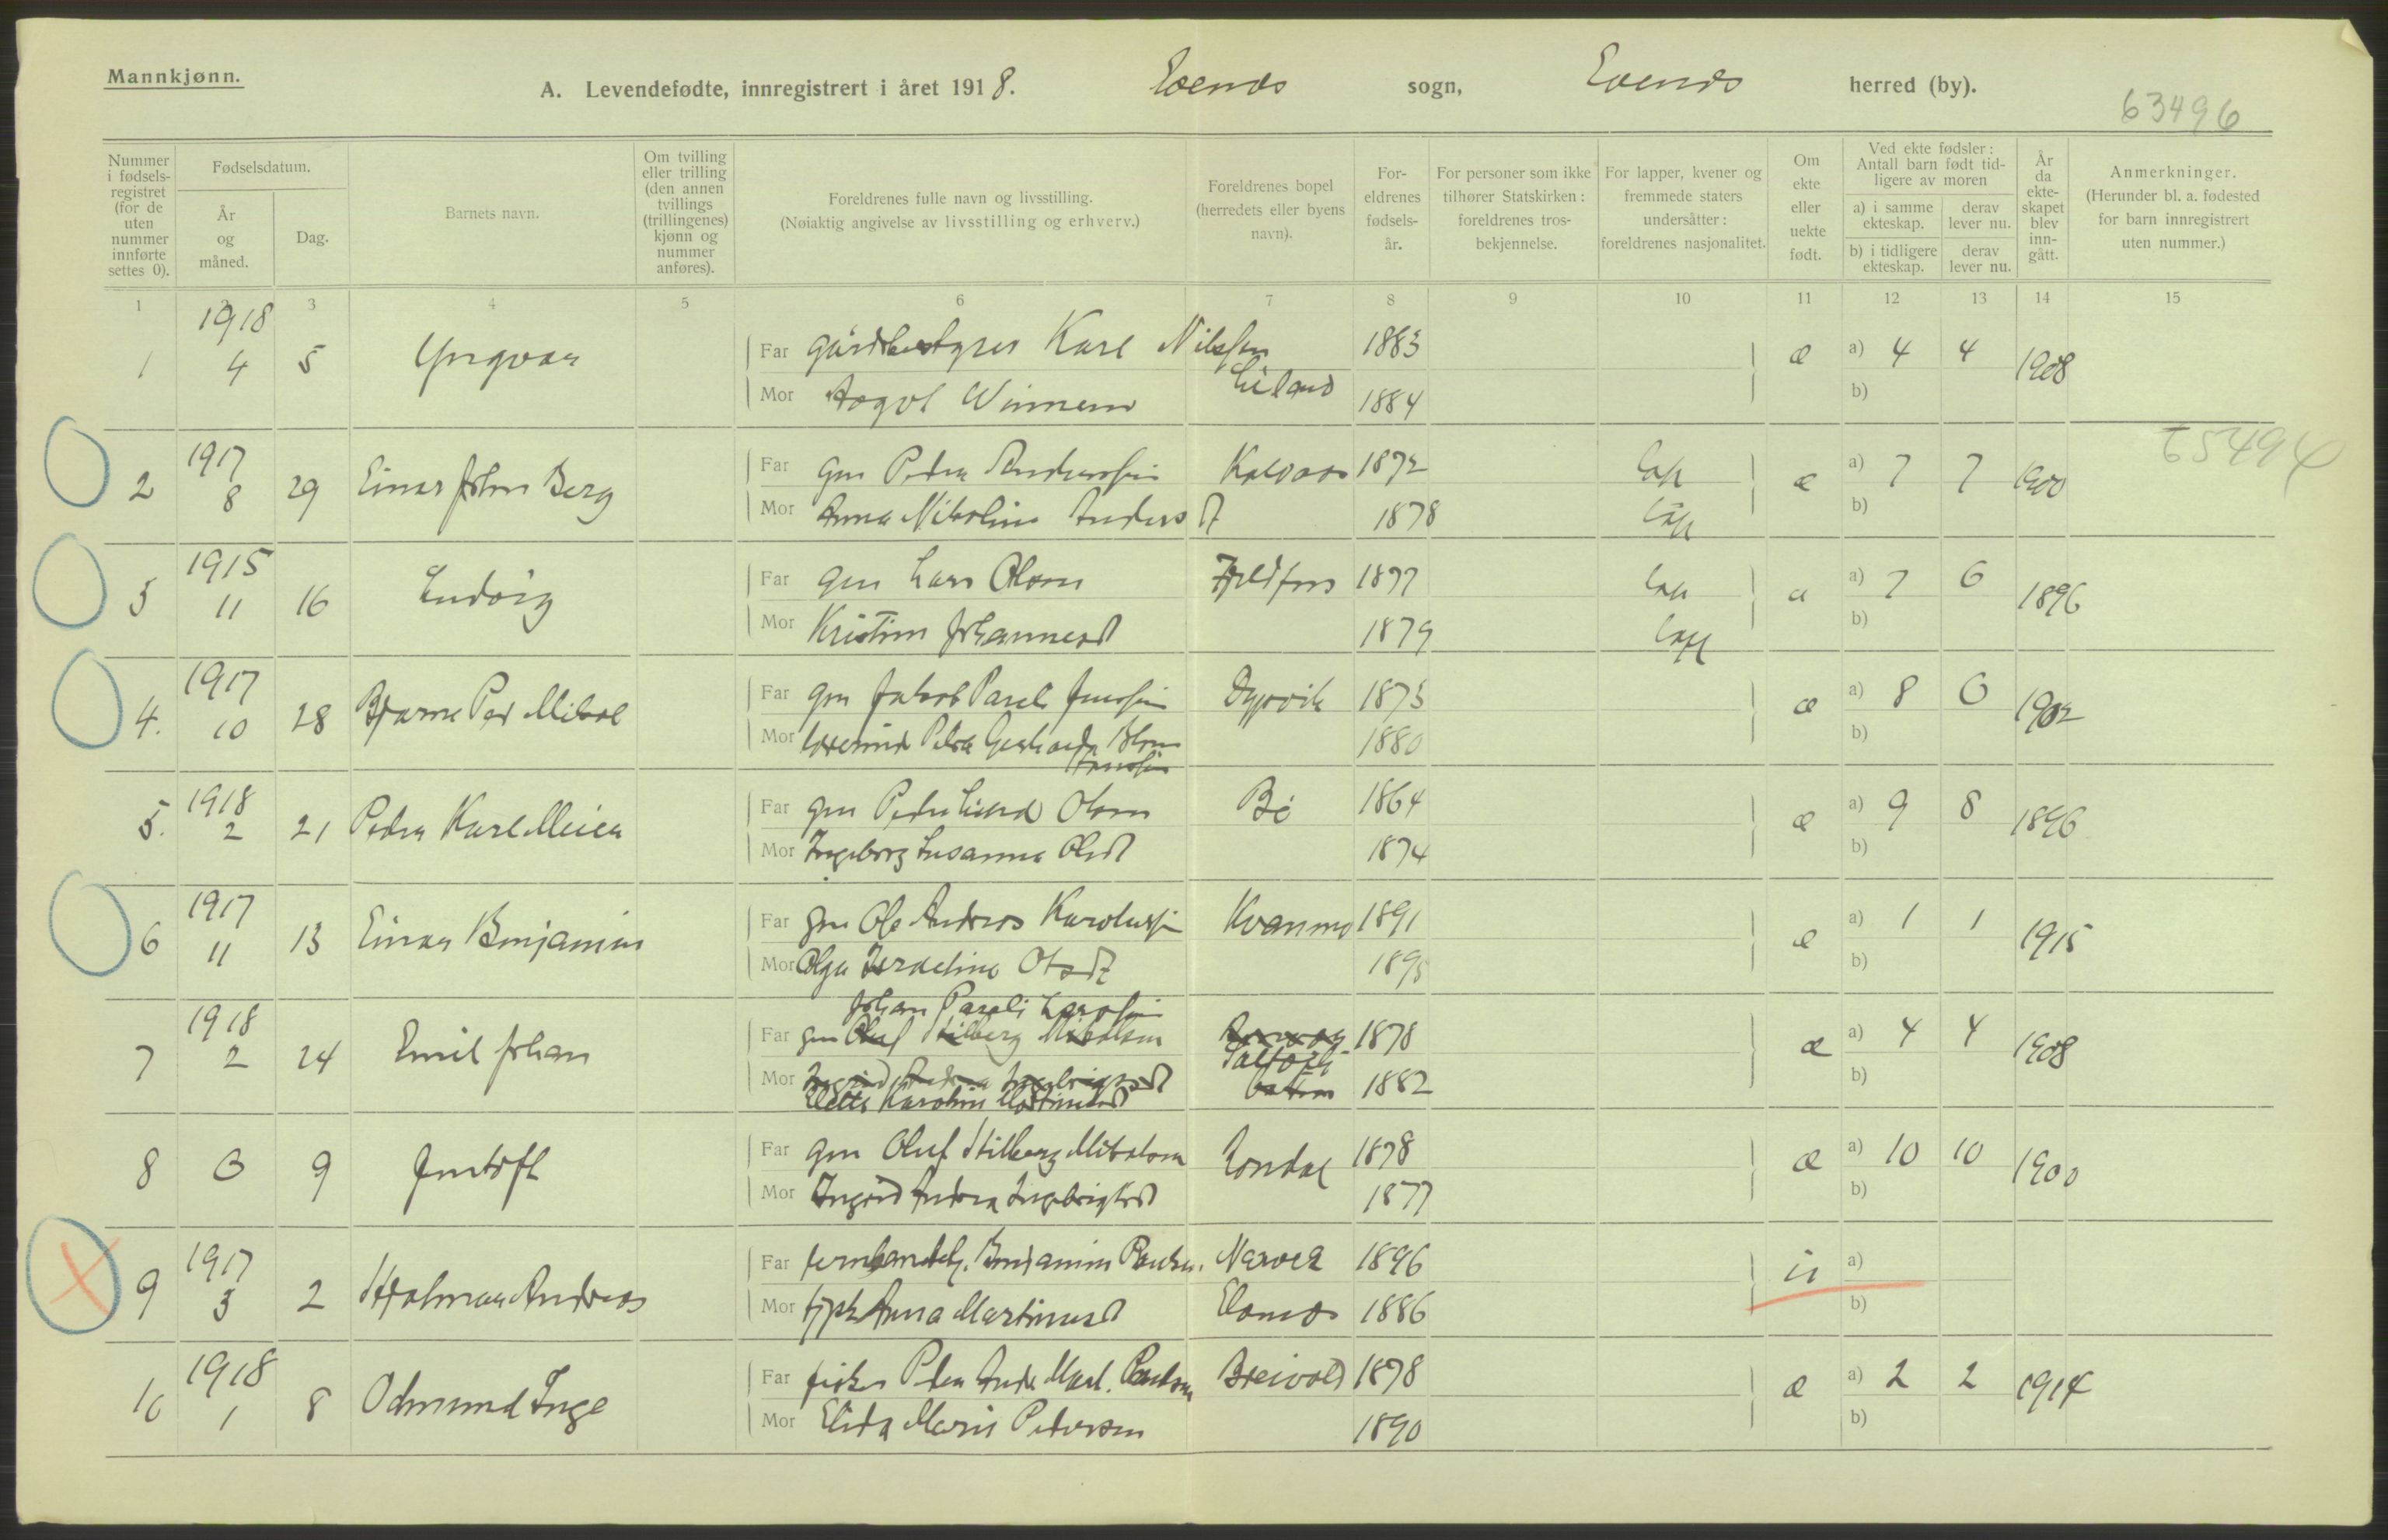 Mannkjønn.
A. Levendefødte, innregistrert i året 1918. Evenes sogn, Evenes herred (by).
63496
Nummer i fødsels-registret (for de uten nummer innførte settes 0).
Fødselsdatum.
År og måned.
Dag.
Barnets navn.
Om tvilling eller trilling (den annen tvillings (trillingenes) kjønn og nummer anføres).
Foreldrenes fulle navn og livsstilling.
(Nøiaktig angivelse av livsstilling og erhverv.)
Foreldrenes bopel (herredets eller byens navn).
For-eldrenes fødsels-år.
For personer som ikke tilhører Statskirken: foreldrenes tros-bekjennelse.
For lapper, kvener og fremmede staters undersåtter: foreldrenes nasjonalitet.
Om ekte eller uekte født.
Ved ekte fødsler: Antall barn født tid-ligere av moren
a) i samme ekteskap. derav lever nu.
b) i tidligere ekteskap. derav lever nu.
År da ekte-skapet blev inn-gått.
Anmerkninger.
(Herunder bl. a. fødested for barn innregistrert uten nummer.)
1 2 3 4 5 6 7 8 9 10 11 12 13 14 15
1918
1 4 5 Yngvar Far gårdbestyrer Karl Nilssen 1883 æ a) 4 4 1908
Mor Aagot Liland 1884 b)
65494
1917
2 8 29 Einar John Berg Far gm Peder Anderssen 1872 lap æ a) 7 7 1900
Mor Anna Nikoline Andersd 1878 lap b)
1915
3 11 16 Ludvig Far gm Lars Olsen 1877 lap æ a) 7 6 1896
Mor Kristine Johannesd 1879 lap b)
1917
4. 10 28 Bjarne Par Mikal Far gm Jakob Pareli Jenssen Dyrvik 1873 æ a) 8 6 1902
Mor Petra Gerharda 1880 b)
Jenssen
1918
5. 2 21 Peder Karl Meier Far gm Peder Olsen Bø 1864 æ a) 9 8 1896
Mor Ingeborg Susanna Olsd 1874 b)
1917
6 11 13 Einar Benjamin Far gm Ole Andreas Karolussen Kvanmo 1891 æ a) 1 1 1915
Mor Olga Israeline Olsdt 1895 b)
1918
Johan Pareli Larssen
7 2 24 Emil Johan Far gm Oluf Stilberg Mikalsen 1878 æ a) 4 4 1908
Mor Ingrid Andrea Ingebrigtsd 1882 b)
Karoline Martinusd
8 6 9 Far gm Oluf Stilberg Mikalsen 1878 æ a) 10 10 1900
Mor Ingrid Andrea Ingebrigtsd 1877 b)
1917
9 3 2 Hjalmar Andreas Far jernbanearb. Benjamin Narvik 1896 u a)
Mor Anna Martinusd Evenes 1886 b)
1918
10 1 8 Odmund Inge Far fisker Peder Andr. Mart. Breivold 1878 æ a) 2 2 1914
Mor Elida Marie Pedersen 1890 b)